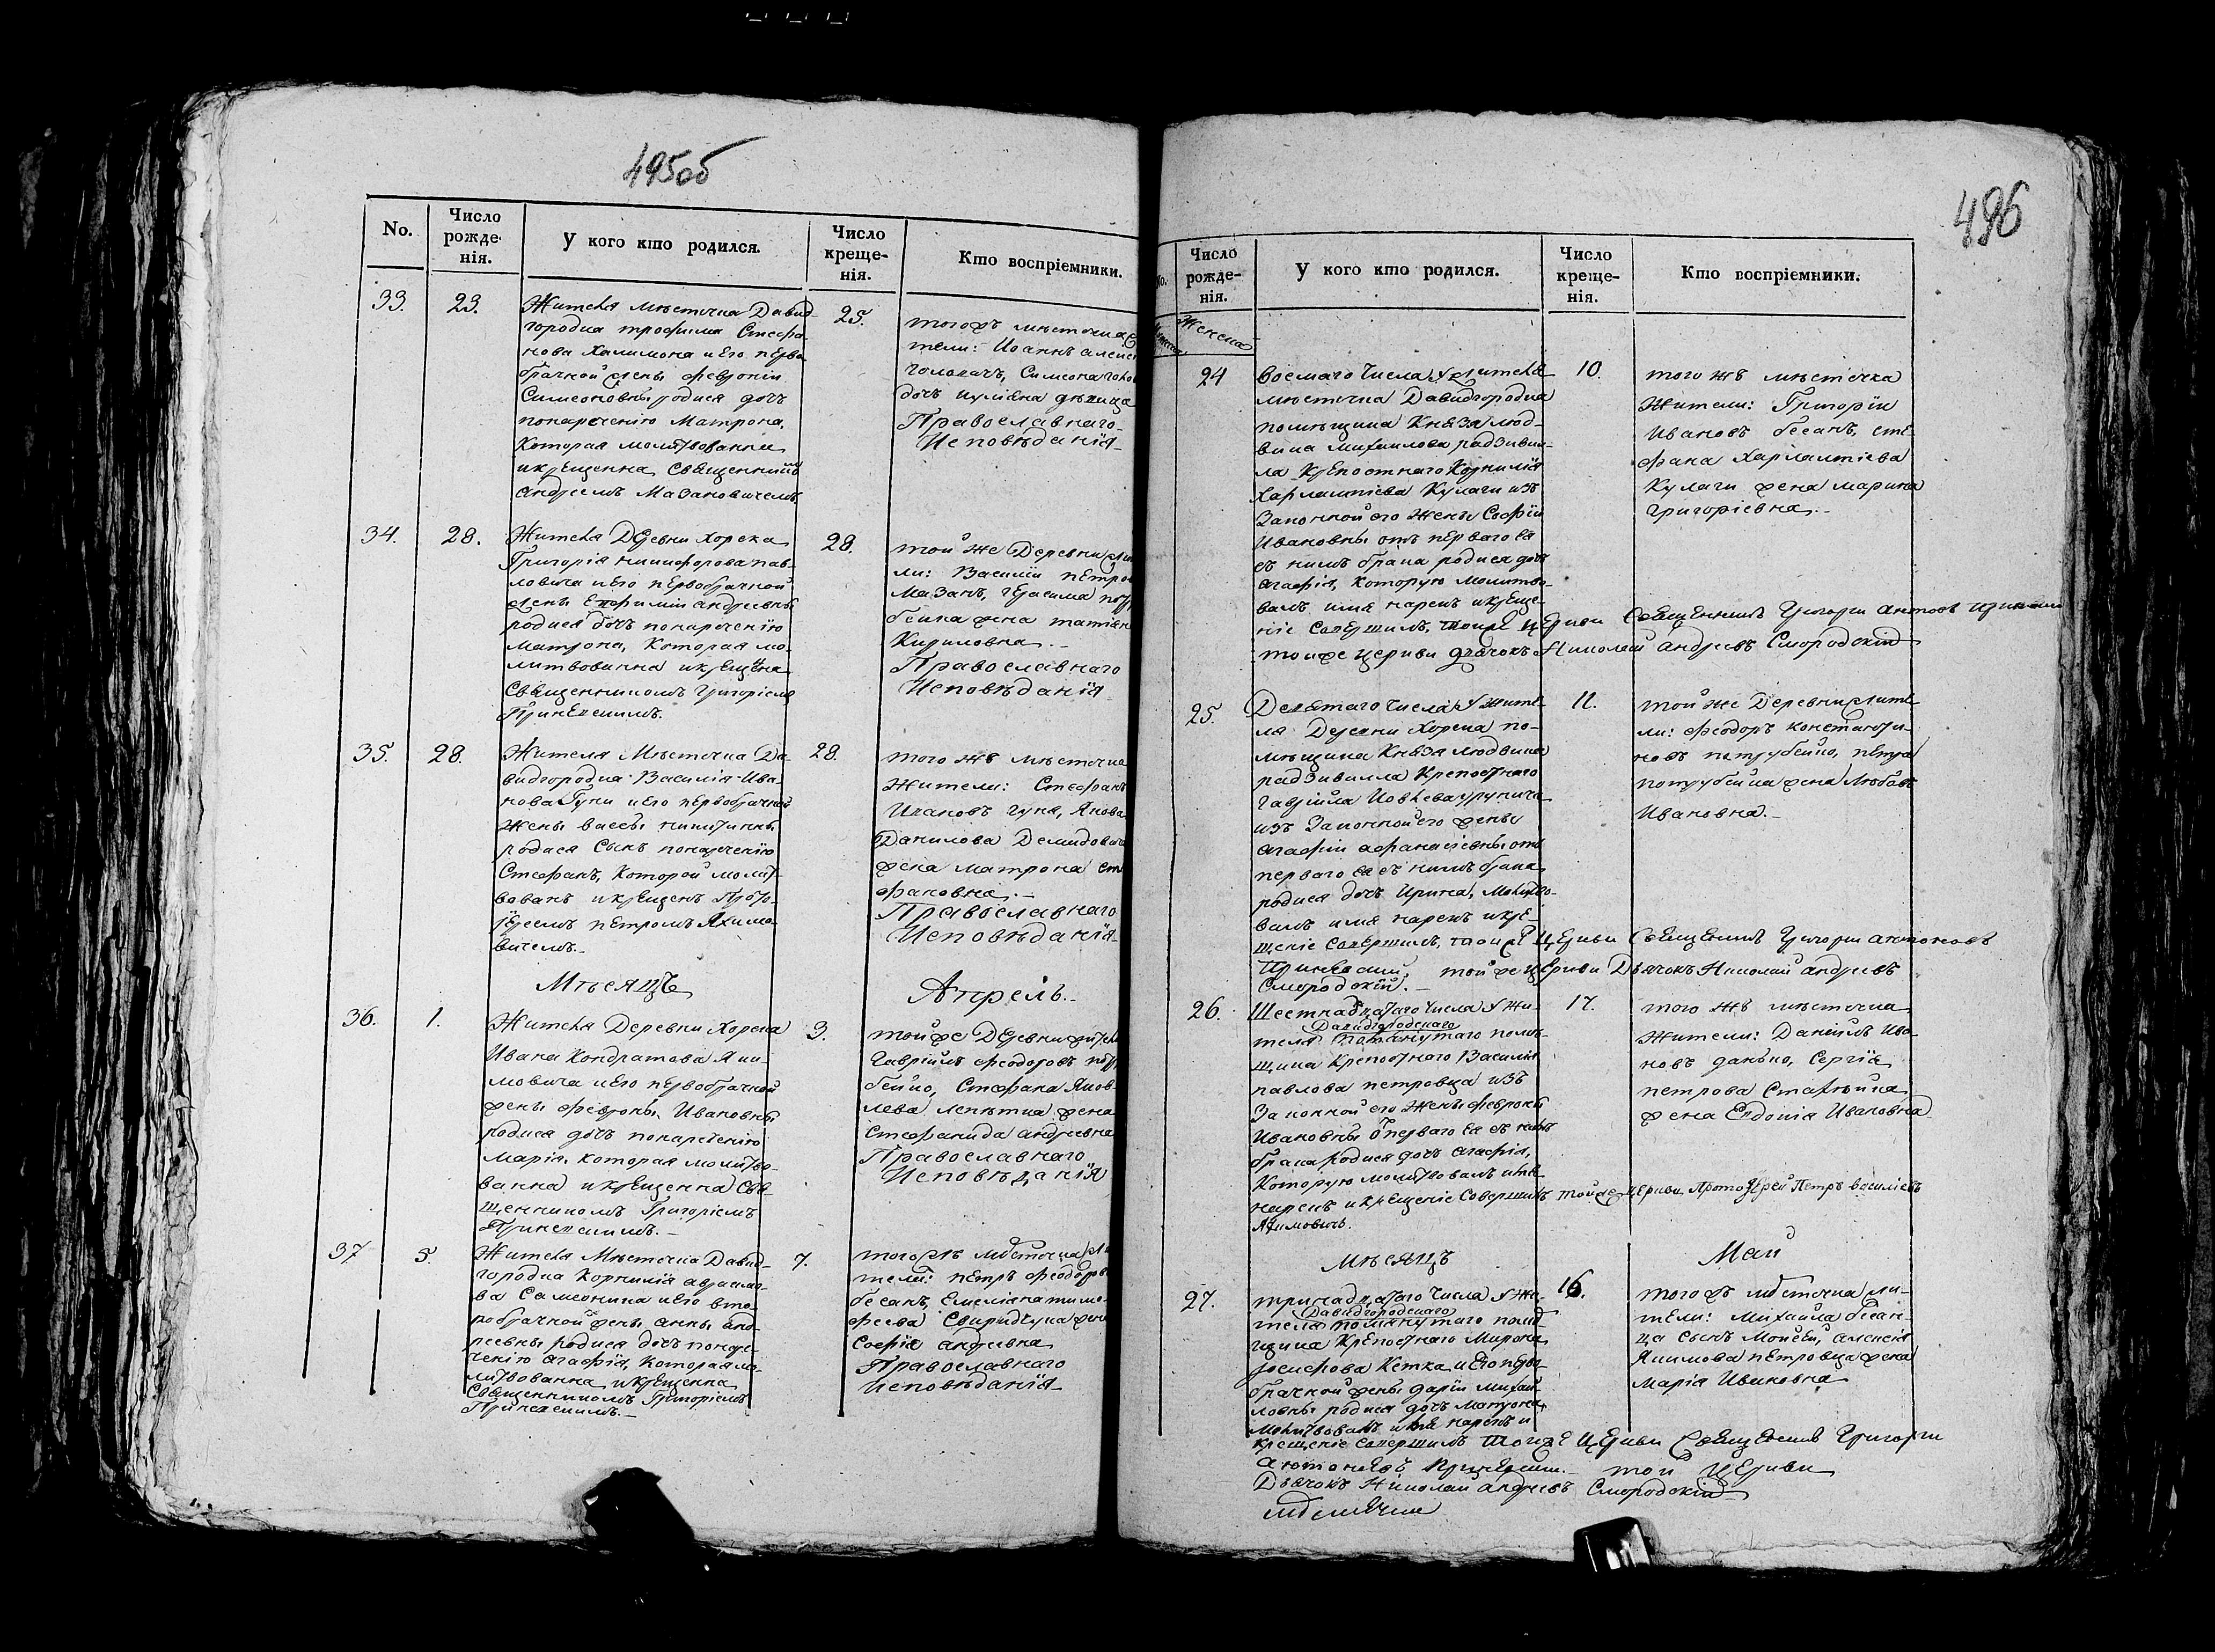 495об
No.
Число рожде-нія.
У кого кто родился.
Число креще-нія.
Кто воспріемники.
33.
23.
Жителя мѣстечка Давид-
городка трофима Стефа-
нова Халимона и его перво-
брачной жены Февроніи
Симеоновны родися дочь
понареченію Матрона,
Которая молитвованна
и крещенна Священникомъ
Андреемъ Мазановичемъ
25.
того жъ мѣстечка
тели: Иоаннъ
Симеона
дочь девица
Православнаго
Исповѣданія
34.
28.
Жителя Деревни Хорска
Григорія Никифорова пав-
ловича и его первобрачной
жены Евфиміи андреевны
родися дочь понареченію
Матрона, Которая мо-
литвованна и крещена
Священникомъ Григоріемъ
28.
той же Деревни
ли: Василій петро
Мазанъ, герасима
жена татіан
Кириловна.
Православнаго
Исповѣданія
35.
28.
Жителя Мѣстечка Да-
видгородка Василія Ива-
нова Гуки и его первобрачной
Жены вассы никитичны
родися Сынъ понареченію
Стефанъ, Которой молит-
вованъ и крещенъ Прото-
іереемъ петромъ Якимо-
вичемъ.
28.
того жъ мѣстечка
Жители: Стефанъ
Ивановъ гука, Якова
Данилова Демидови
жена матрона сте
фановна.
Православнаго
Исповѣданія
Мѣсяцъ
Апрель.
36.
1.
Жителя Деревни Хорска
Ивана Кондратова Яки-
мовича и его первобрачной
жены февроньи Ивановны
родися дочь понареченію
Марія, которая молитво-
ванна и крещенна Свя-
щенникомъ Григоріемъ
3.
той же Деревни жители
Гавріилъ феодоровъ
Стефана Яков-
лева жена
Стефанида андреевна
Православнаго
Исповѣданія
37
5.
Жителя Мѣстечка Давид-
городка Корнилія
ва и его вто-
робрачной жены анны анд-
реевны родися дочь понаре-
ченію агафія, Которая мо-
литвованна и крещенна
Священникомъ Григоріемъ
7.
того жъ мѣстечка
тели: петръ феодоровъ
бесанъ, Емеліана тимо-
феева жена
Софія андреевна
Православнаго
Исповѣданія
496
Число рожде-нія.
У кого кто родился.
Число креще-нія.
Кто воспріемники.
Женска
24
восмаго Числа У жителя
мѣстечка Давидгородка
помещика Князя люд-
вика Михаилова радзиви-
ла Крепостнаго Корнилія
Харлампіева Кулаги изъ
Законной его Жены Софіи
Ивановны отъ перваго ея
съ нимъ брака родися дочь
агафія, которую молитво-
валъ имя нарекъ и креще-
ніе Совершилъ, тоиже Церкви Священникъ Григорій Антоновъ
тоиже церкви дьячокъ Николай андреевъ Смородскій
10.
того жъ мѣстечка
Жители: Григорій
Ивановъ бесанъ, сте-
фана Харлампіева
Кулаги жена марина
Григоріевна.
25.
Десятаго Числа У жите-
ля Деревни Хорска по-
мѣщика Князя людвика
радзивилла Крепостнаго
гавріила
изъ Законной его жены
агафіи афанасіевны отъ
перваго ея съ нимъ брака
родися дочь Ирина, Молитво-
валъ имя нарекъ и кре-
щеніе совершилъ, тоиже Церкви Священникъ Григорій антоновъ
той же церкви Дьячокъ Николай андреевъ
Смородскій.
11.
той же Деревни жите-
ли: феодоръ константи-
новъ петра
жена Любовь
Ивановна.
26.
Шестнадцатаго Числа У Жи-
Давидгородскаго
теля помянутаго помѣ-
щика Крепостнаго Василія
павлова петровца изъ
Законной его Жены февроніи
Ивановны отъ перваго ея съ нимъ
брака родися дочь агафія,
Которую молитвовалъ имя
нарекъ и крещеніе Совершилъ тойже церкви Протоіерей Петръ Василіевъ
Якимовичъ.
17.
того жъ мѣстечка
Жители: Даніилъ Ива-
новъ данько, Сергія
петрова
жена Евдокія Ивановна
Мѣсяцъ
Май
27.
тринадцатаго Числа У Жи-
Давидгородскаго
теля помянутаго помѣ-
щика Крепостнаго Мирона
Іосифова Кетка и его перво-
брачной жены даріи михай-
ловны родися дочь матрона,
Молитвовалъ имя нарекъ и
крещеніе Совершилъ Тоиже Церкви Священникъ Григорій
той Церкви
Дьячокъ Николай андреевъ Смородскій
16.
того жъ мѣстечка жи-
тели: Михаила бесан-
ца сынъ Моисей, алексія
Якимова петровца жена
Марія Ивановна